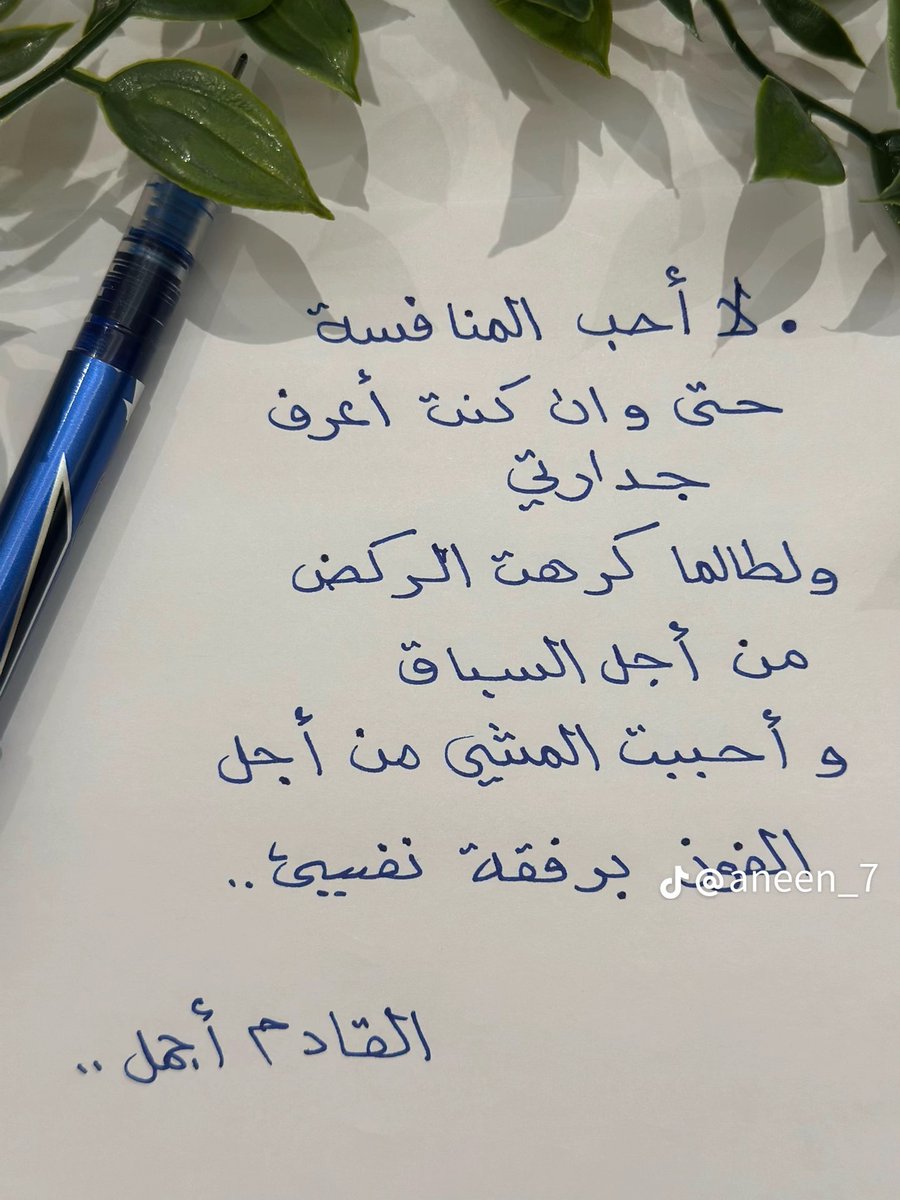 . لا أحب المنافسة
حتى وان كنت أعرف
جدارتي
ولطالما كرهت الركض
من أجل السباق
و أحببت المشي من أجل
الفوز برفقة نفسي..
@aneen_7
القادم أجمل..